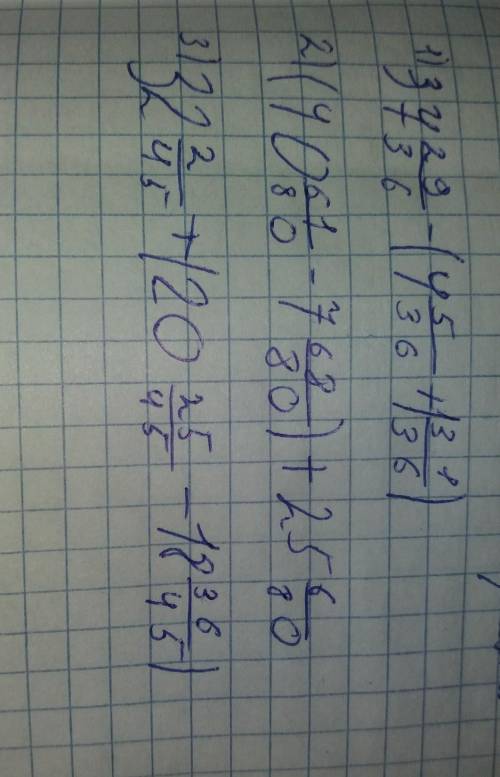 1) 34 29/36 - (4 5/36 + 1 31/36)
2) (40 61/80 - 7 68/80) + 25 6/80
3) 22 2/45 + (20 25/45 - 18 36/45)